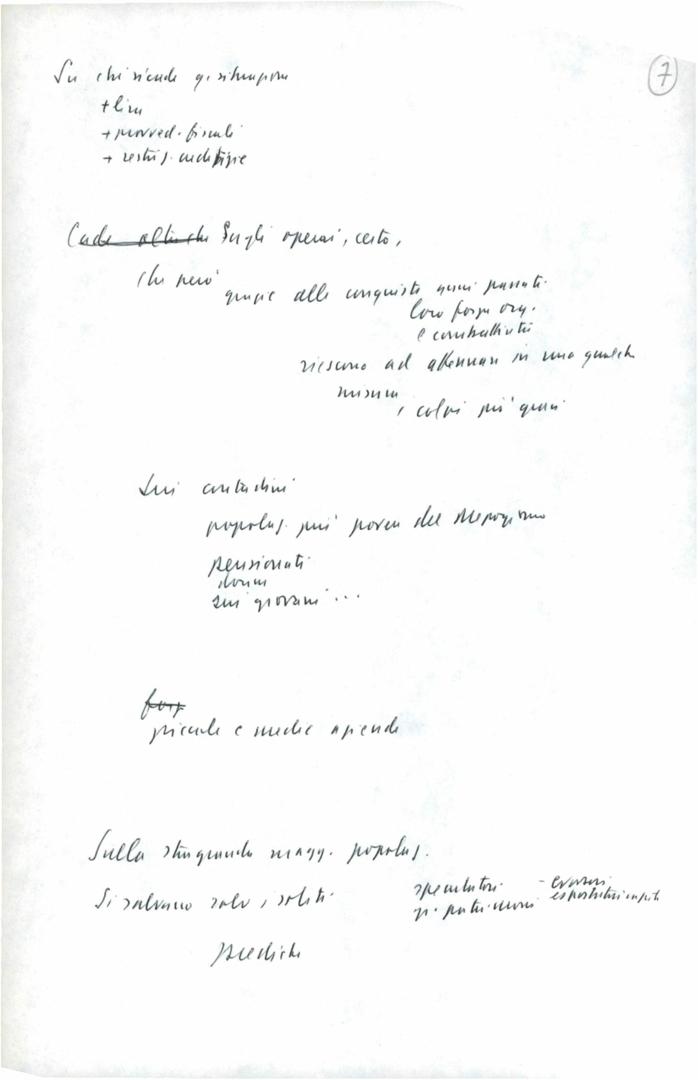 7
Su chi ricade q. situazione
+ lira
+ provved. fiscali
+ restriz. creditizie
Cade oltre che Sugli operai, certo,
che però
grazie alle conquiste anni passati
loro forza org.
e combattività
riescono ad attenuare in una qualche
misura
i colpi più gravi
Sui contadini
popolaz. più povera del Mezzogiorno
pensionati
donne
sui giovani ...
forz
piccole e medie aziende
Sulla stragrande magg. popolaz.
Si salvano solo i soliti
speculatori - evasori
gr. patrimoni esportatori capit.